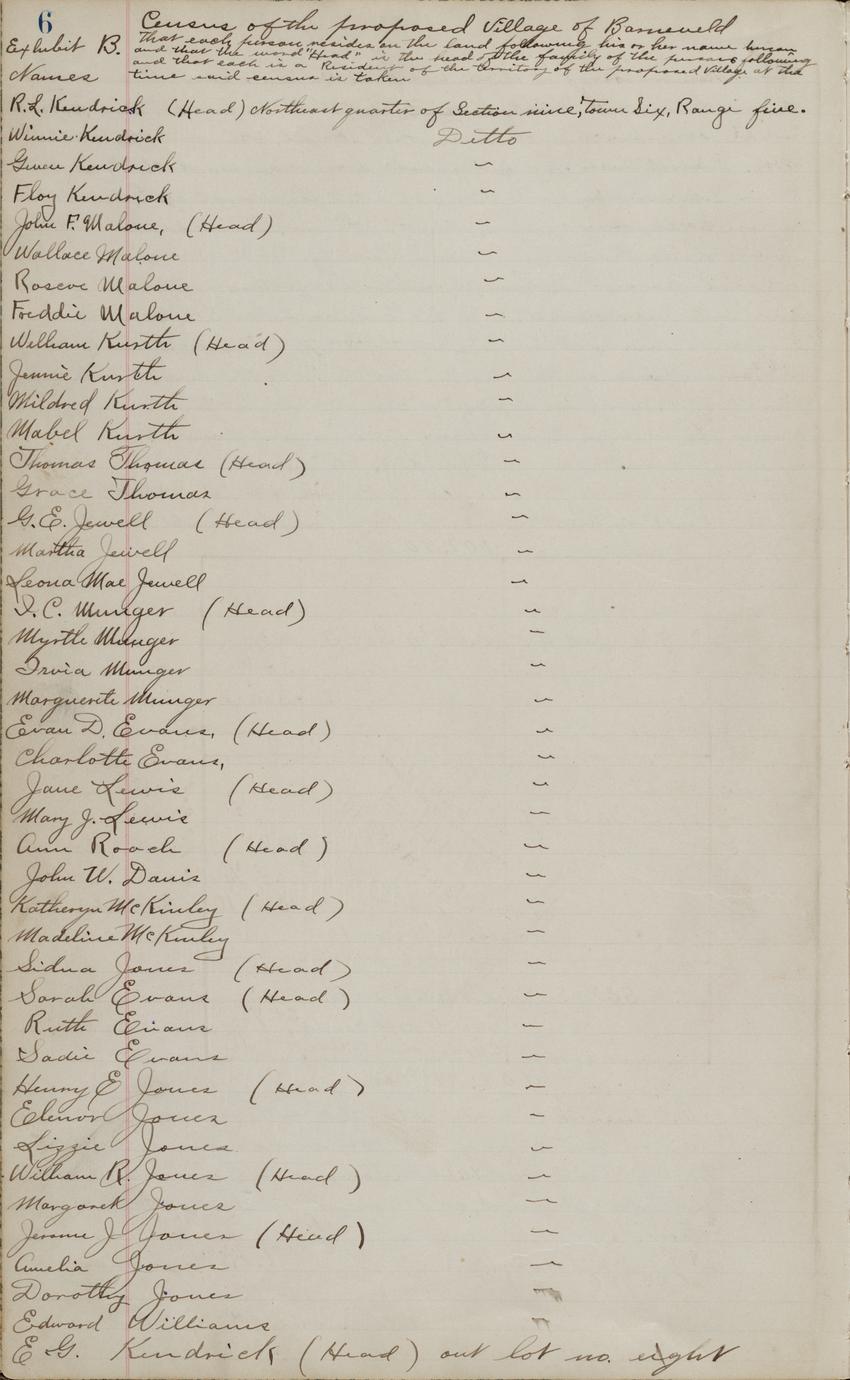 6
Census of the proposed Village of Barneveld
Exhibit B.
that each person resides on the land following his or her name hereon
and that the word "Head" is the head of the family of the persons following
and that each is a Resident of the territory of the proposed Village at the
time said census is taken
Names
R.L. Kendrick (Head) Northeast quarter of Section nine, town Six, Range five.
Winnie Kendrick Ditto
Gwen Kendrick "
Floy Kendrick "
John F. Malone, (Head) "
Wallace Malone "
Roscoe Malone "
Freddie Malone "
William Kurth (Head) "
Jennie Kurth "
Mildred Kurth "
Mabel Kurth "
Thomas Thomas (Head) "
Grace Thomas "
G.E. Jewell (Head) "
Martha Jewell "
Leona Mae Jewell "
I.C. Munger (Head) "
Myrtle Munger "
Irvia Munger "
Marguerite Munger "
Evan D. Evans, (Head) "
Charlotte Evans, "
Jane Lewis (Head) "
Mary J. Lewis "
Ann Roach (Head) "
John W. Davis "
Katheryn McKinley (Head) "
Madeline McKinley "
Sidna Jones (Head) "
Sarah Evans (Head) "
Ruth Evans "
Sadie Evans "
Henry E Jones (Head) "
Elenor Jones "
Lizzie Jones "
William R. Jones (Head) "
Margaret Jones "
Jerome J Jones (Head) "
Amelia Jones "
Dorothy Jones "
Edward Williams "
E G. Kendrick (Head) out lot no. eight